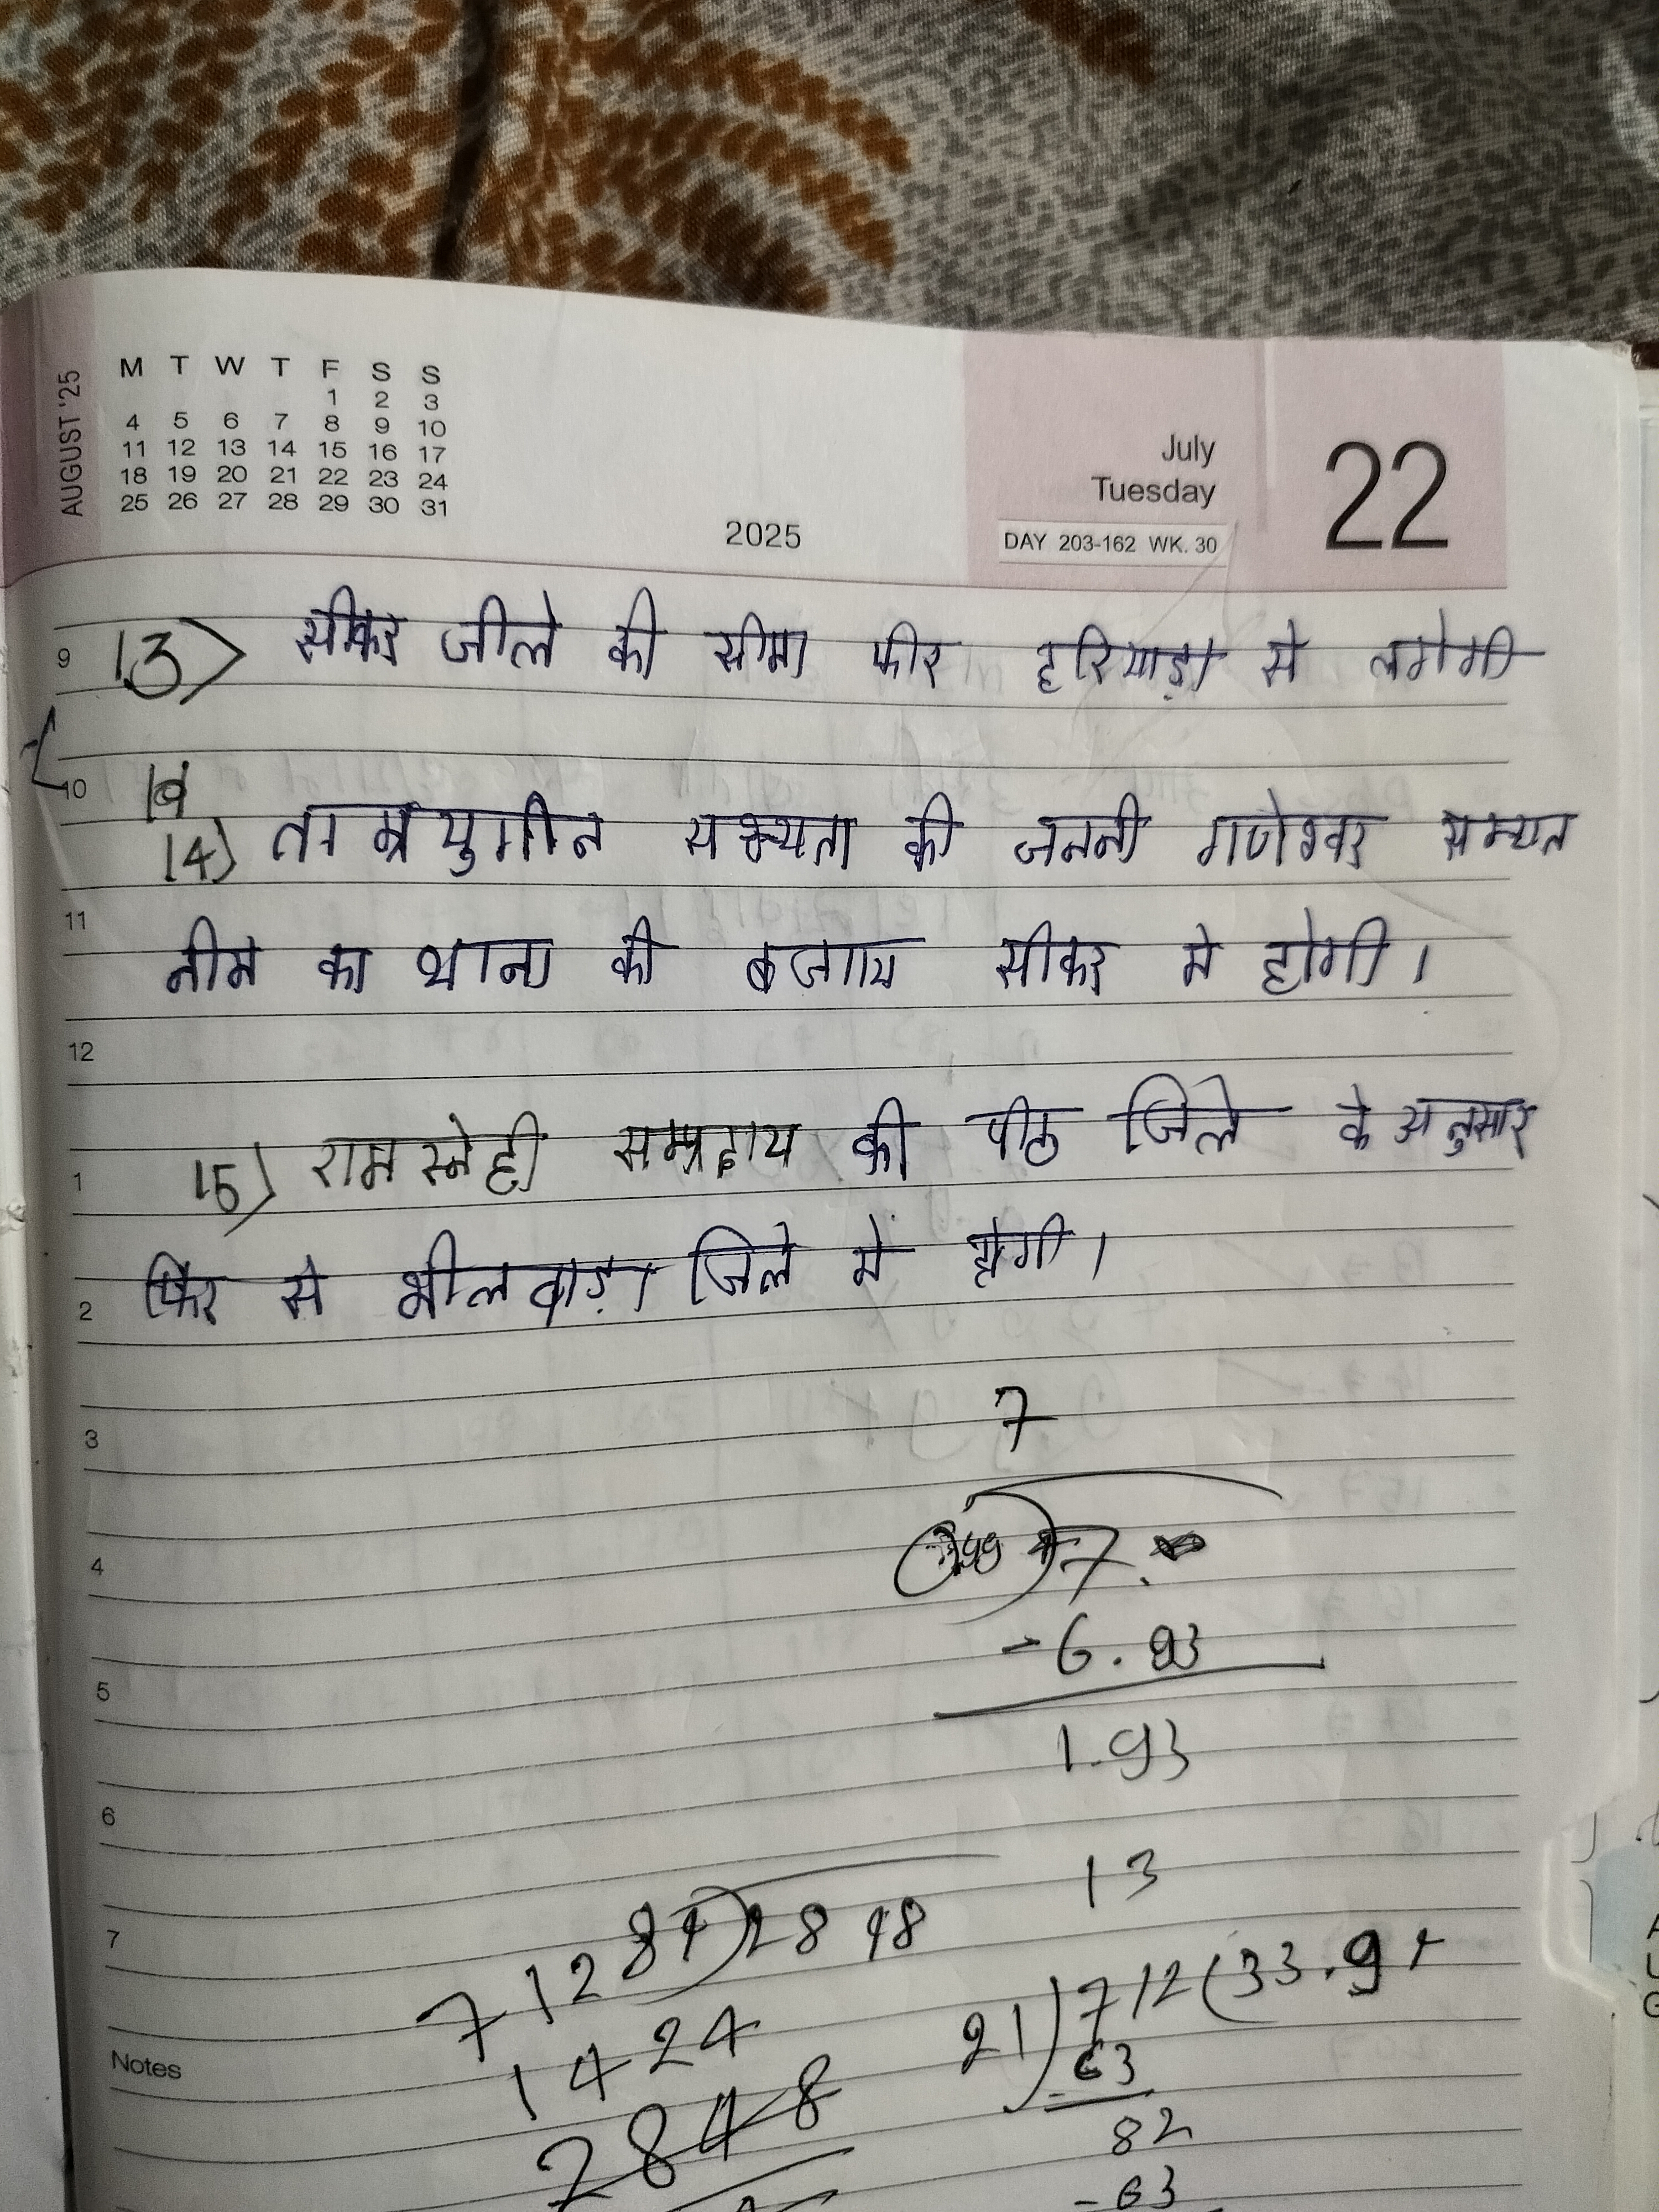 AUGUST '25
M T W T F S S
1 2 3
4 5 6 7 8 9 10
11 12 13 14 15 16 17
18 19 20 21 22 23 24
25 26 27 28 29 30 31
2025
July
Tuesday
DAY 203-162 WK. 30
22
9
13) सीकर जीले की सीमा फीर हरियाड़ा से लगेगी
10
14) ताम्रयुगीन सभ्यता की जननी गणेश्वर सभ्यत
11
नीम का थाना की बजाय सीकर मे होगी।
12
1
15) रामस्नेही सम्प्रदाय की पीठ जिले के अनुसार
2
फिर से भीलवाड़ा जिले मे होगी।
3
7
4
7.
- 6.93
5
1.93
6
13
7
84)2848
712
21)712(33.9
1424
- 63
Notes
2848
82
- 63